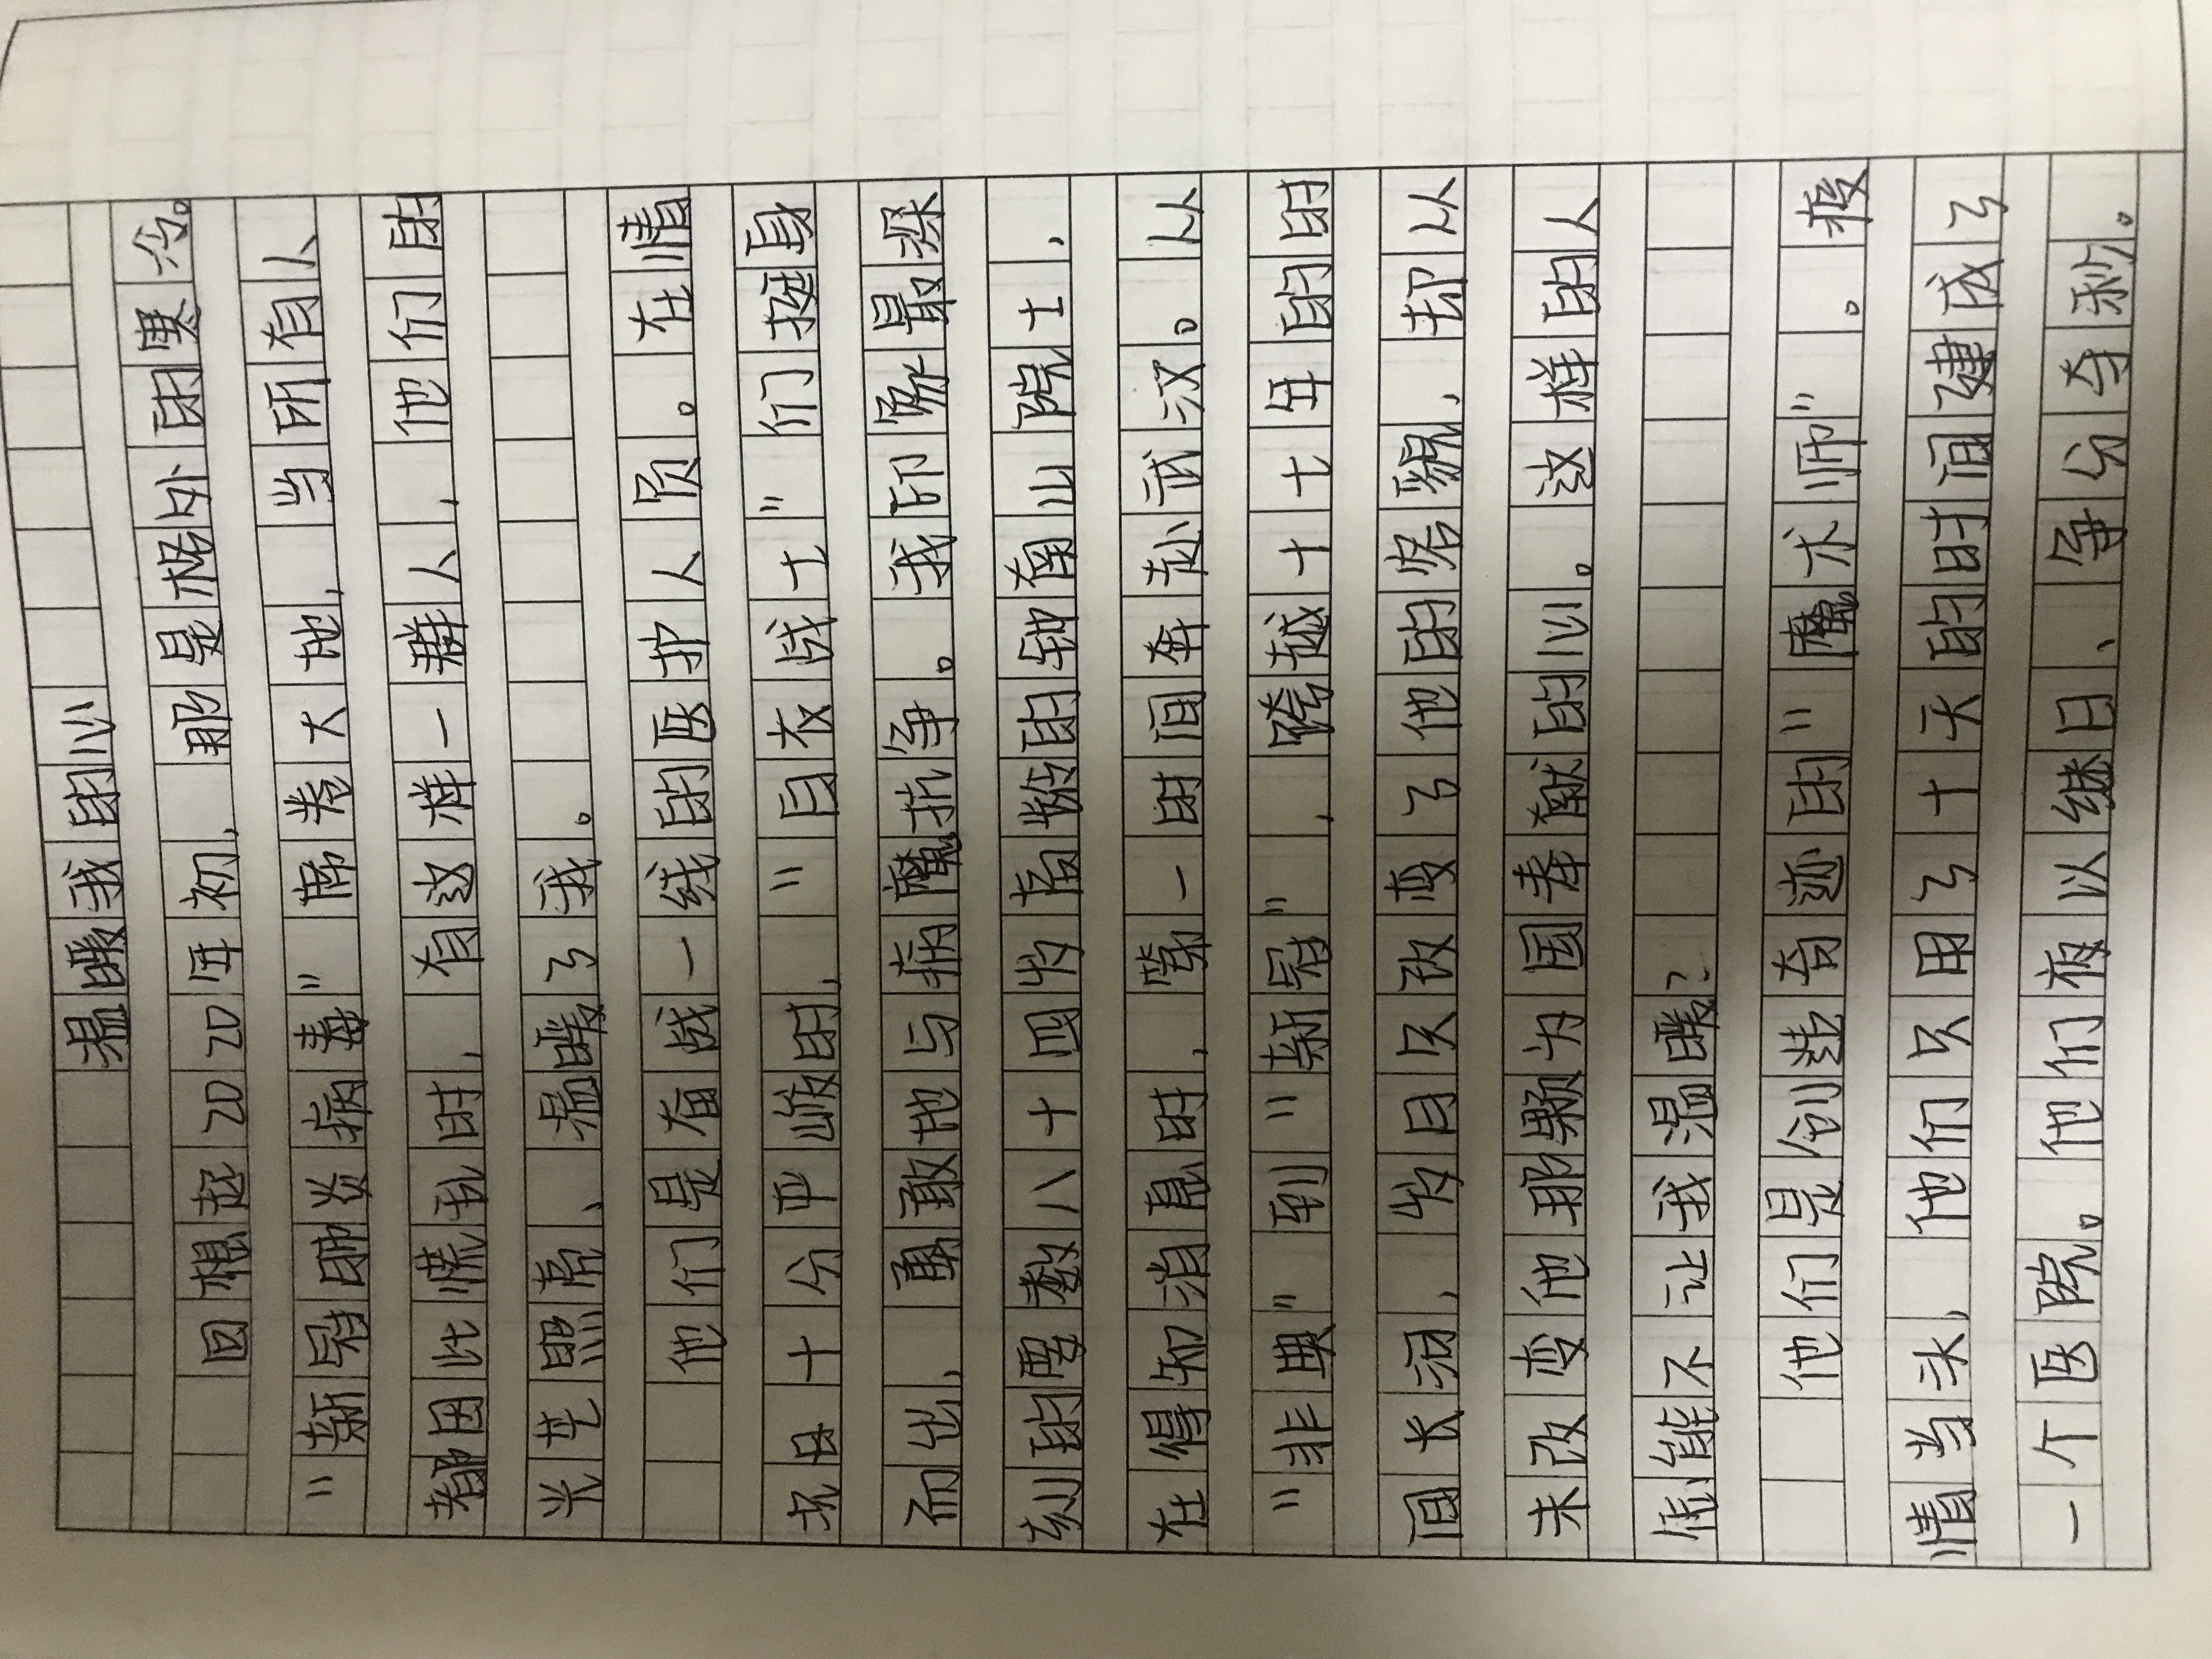 温暖我的心
回想起2020年初，那是格外的寒冷。
“新冠肺炎病毒”席卷大地，当所有人
都因此慌乱时，有这样一群人，他们的
光芒照亮、温暖了我。
他们是奋战一线的医护人员。在情
况十分严峻时，“白衣战士”们挺身
而出，勇敢地与病魔抗争。我印象最深
刻的要数八十四岁高龄的钟南山院士，
在得知消息时，第一时间奔赴武汉。从
“非典”到“新冠”，跨越十七年的时
间长河，岁月只改变了他的容貌，却从
未改变他那颗为国奉献的心。这样的人
怎能不让我温暖？
他们是创造奇迹的“魔术师”。疫
情当头，他们只用了十天的时间建成了
一个医院。他们夜以继日、争分夺秒。